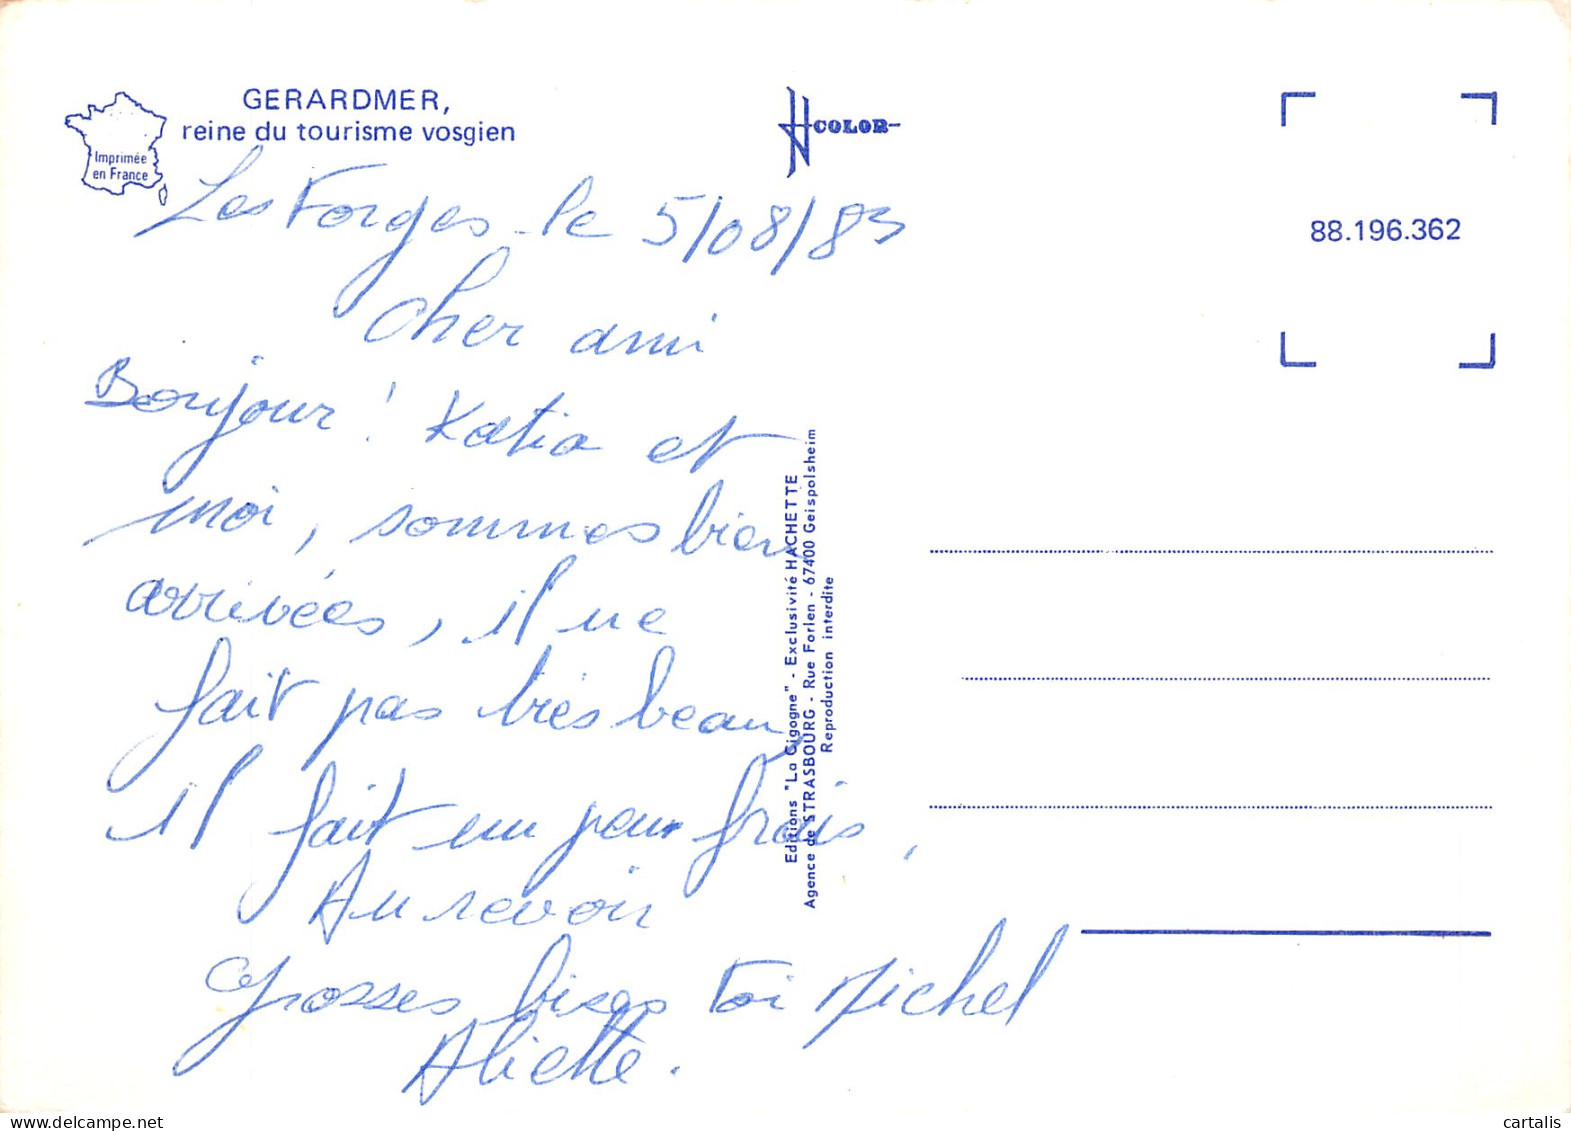 GERARDMER,
reine du tourisme vosgien
Imprimée
en France
COLOR
88.196.362
Les Forges le 5/08/83
Cher ami
Bonjour ! Katia et
moi, sommes bien
arrivées, il ne
fait pas très beau,
il fait un peu frais,
Au revoir
Grosses bises Toi Michel
Aliette.
Editions "La Cigogne" - Exclusivité HACHETTE
Agence de STRASBOURG - Rue Forlen - 67400 Geispolsheim
Reproduction interdite
cartalis